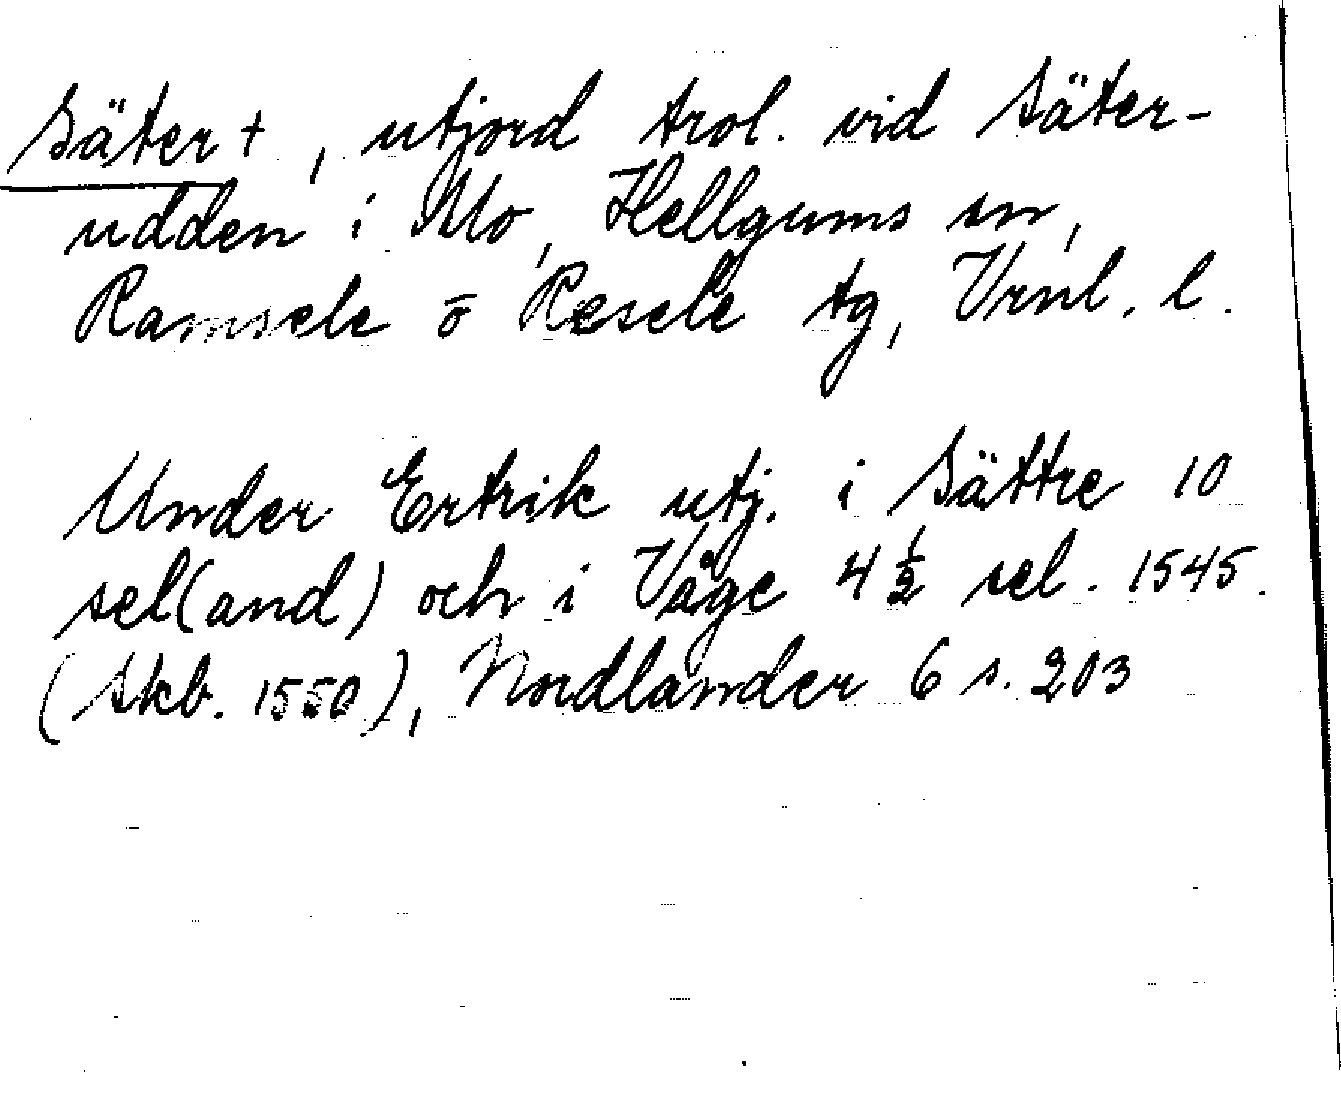 Säter †, utjord trol. vid Säter-
udden i Mo, Hellgums sn,
Ramsele o Resele tg, Vrnl. l.
Under Ertrik utj. i Sättre 10
sel(and) och i Våge 4 ½ sel. 1545.
(Skb. 1550), Nordlander 6 s. 203